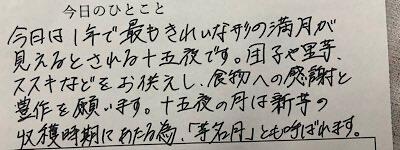 今日のひとこと
今日は1年で最もきれいな形の満月が
見えるとされる十五夜です。団子や里芋、
ススキなどをお供えし、食物への感謝と
豊作を願います。十五夜の月は新芋の
収穫時期にあたる為、「芋名月」とも呼ばれます。